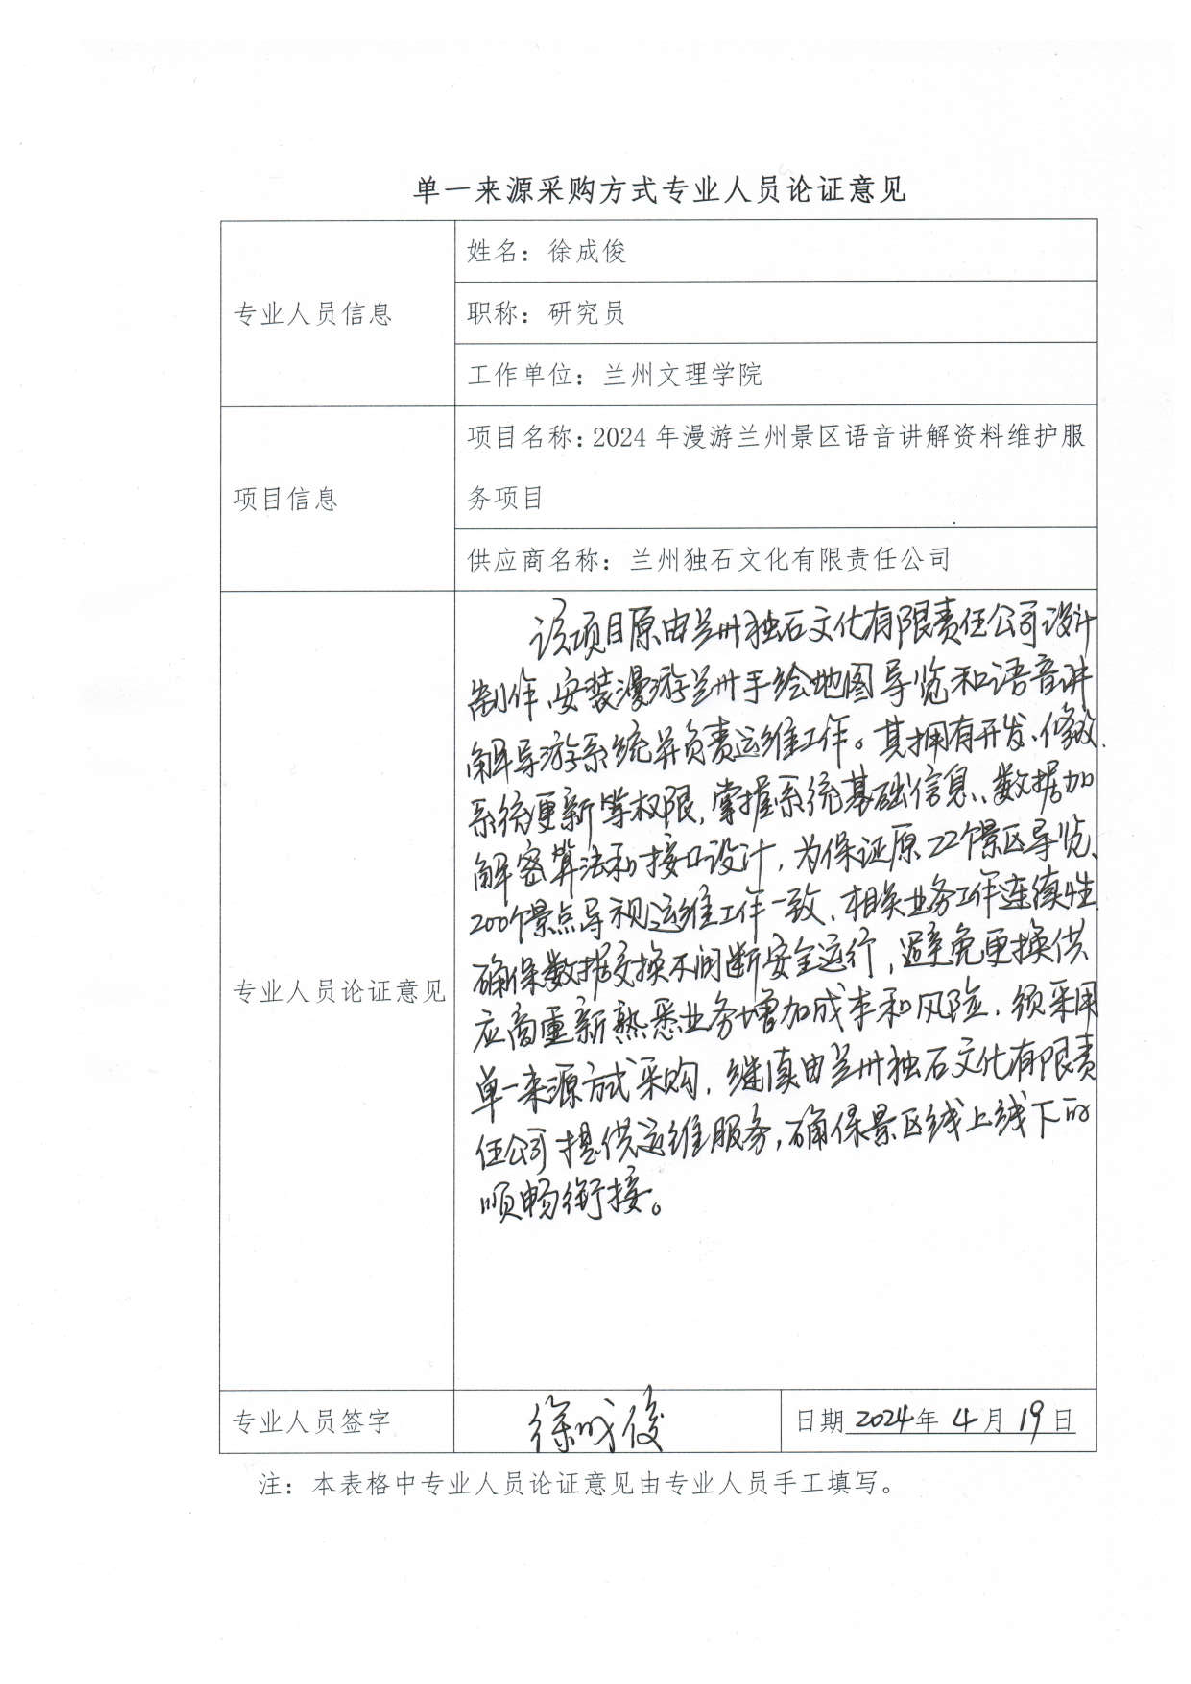 单一来源采购方式专业人员论证意见
专业人员信息
姓名：徐成俊
职称：研究员
工作单位：兰州文理学院
项目信息
项目名称：2024年漫游兰州景区语音讲解资料维护服
务项目
供应商名称：兰州独石文化有限责任公司
专业人员论证意见
该项目原由兰州独石文化有限责任公司设计
制作、安装漫游兰州手绘地图导览和语音讲
解导游系统并负责运维工作。其拥有开发、修改、
系统更新等权限，掌握系统基础信息、数据加
解密算法和接口设计，为保证原22个景区导览、
200个景点导视运维工作一致、相关业务工作连续性
确保数据交换不间断安全运行，避免更换供
应商重新熟悉业务增加成本和风险，须采用
单一来源方式采购，继续由兰州独石文化有限责
任公司提供运维服务，确保景区线上线下的
顺畅衔接。
专业人员签字
徐成俊
日期 2024年 4月 19日
注：本表格中专业人员论证意见由专业人员手工填写。